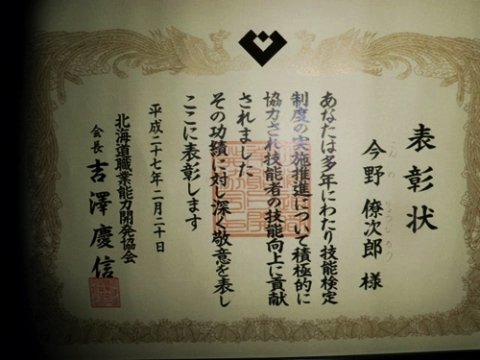 表彰状
今野 僚次郎 様
あなたは多年にわたり技能検定
制度の実施推進について積極的に
協力され技能者の技能向上に貢献
されました
その功績に対し深く敬意を表し
ここに表彰します
平成二十七年二月二十日
北海道職業能力開発協会
会長 吉澤慶信